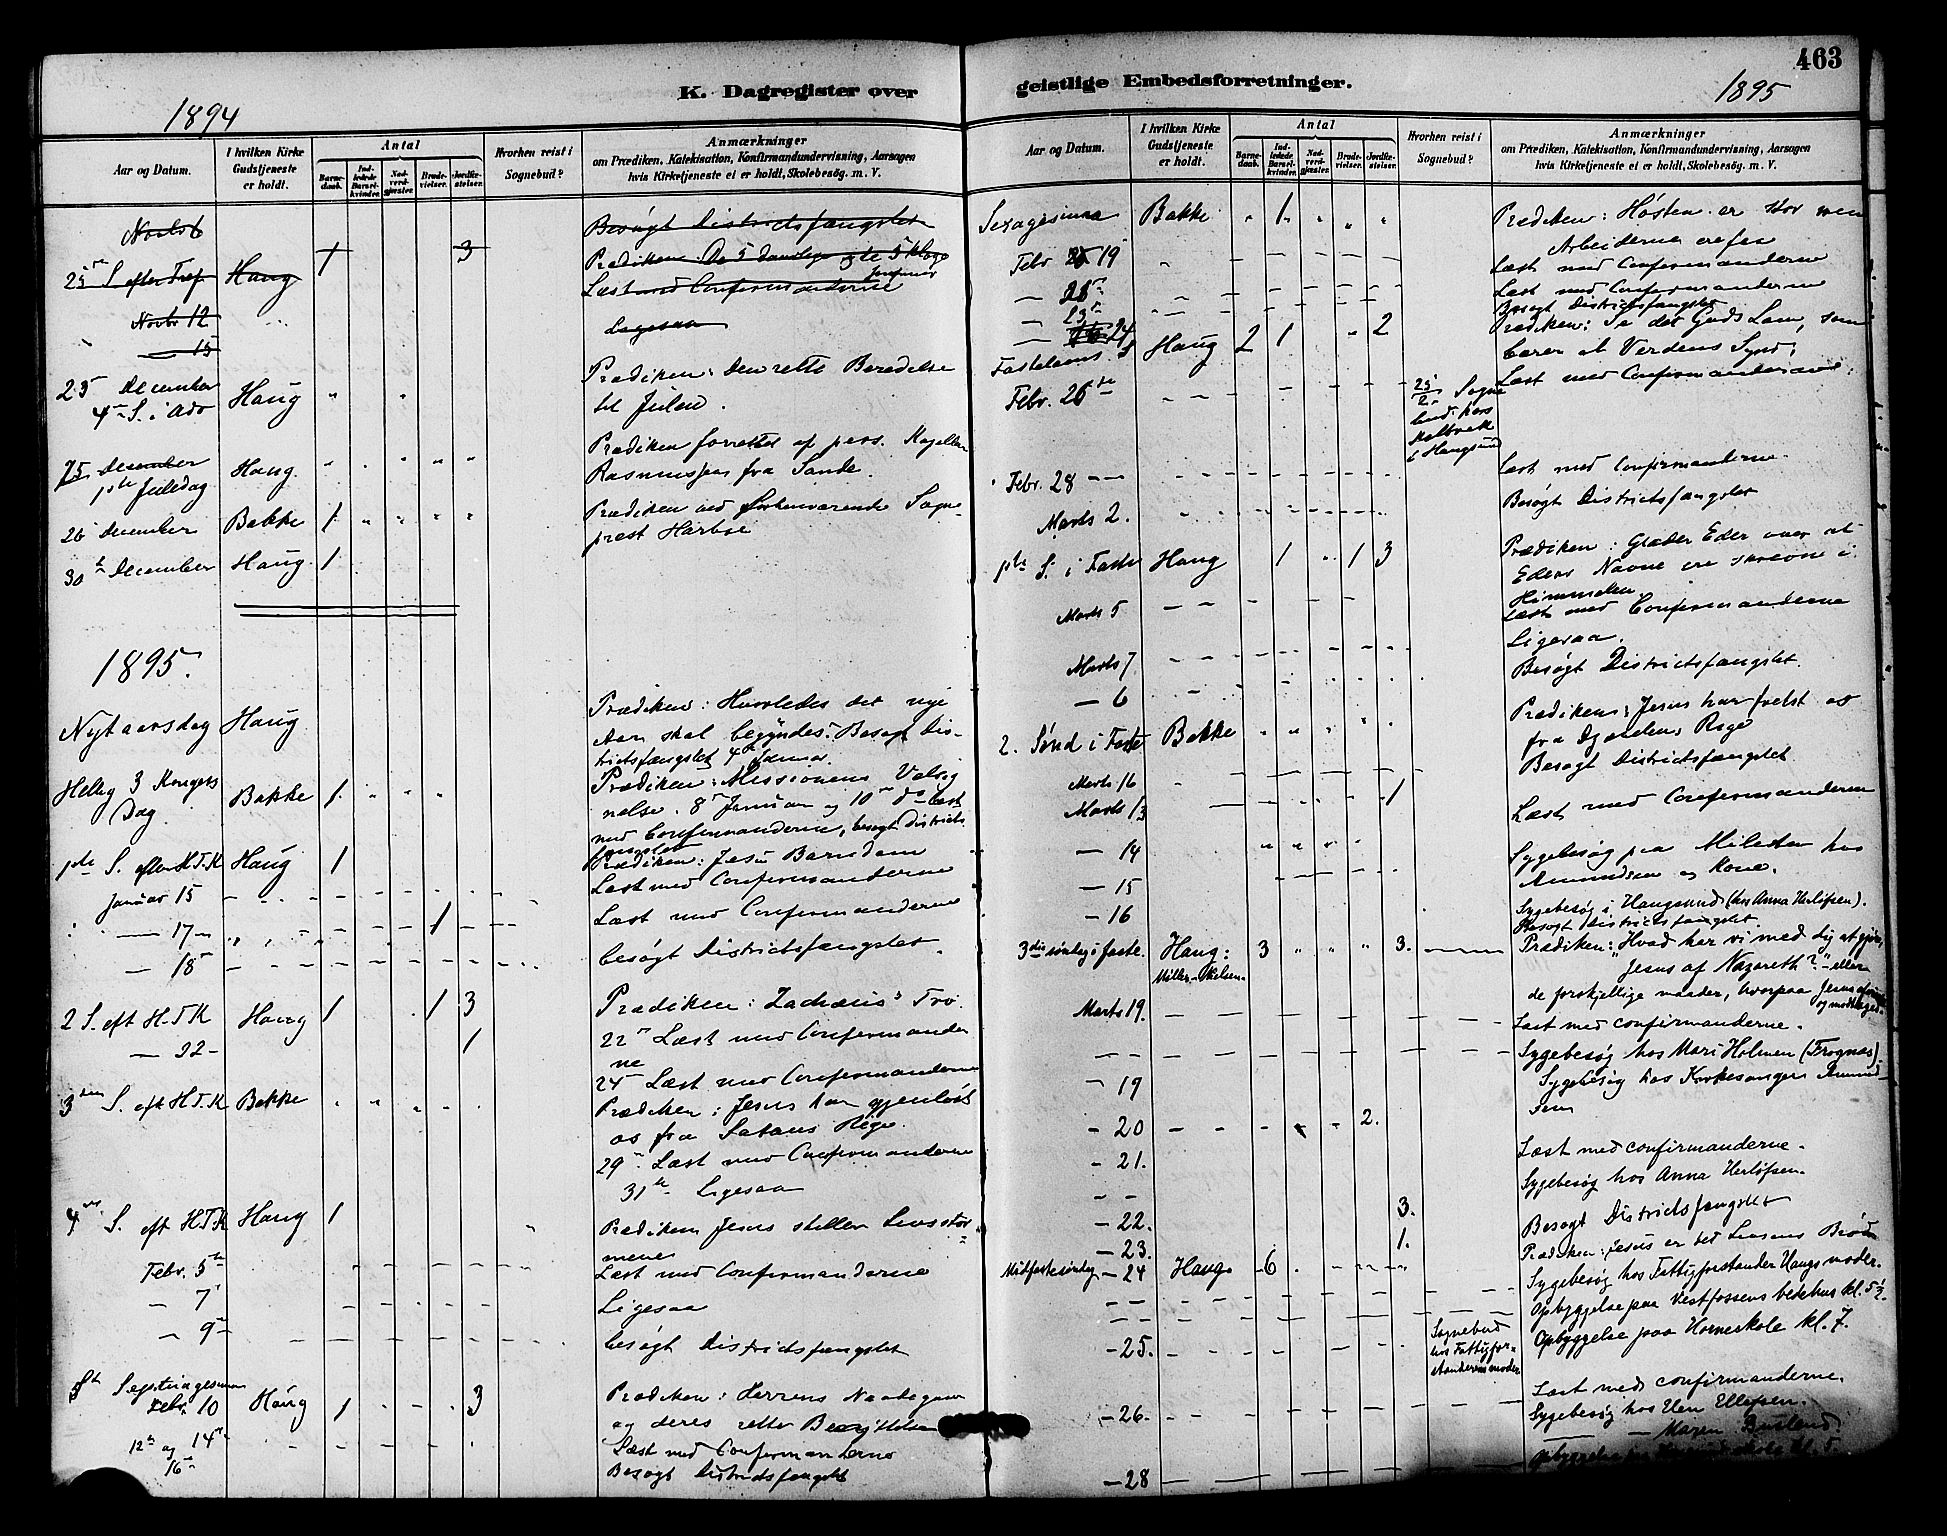 463
K. Dagregister over geistlige Embedsforretninger.
1894
1895
Aar og Datum.
I hvilken Kirke Gudstjeneste er holdt.
Antal
Barnedaab.
Indledede Barselkvinder.
Nadverdgjester.
Brudevielser.
Jordfæstelser.
Hvorhen reist i Sognebud?
Anmærkninger
om Prædiken, Katekisation, Konfirmandundervisning, Aarsagen
hvis Kirketjeneste ei er holdt, Skolebesøg. m. V.
Novbr 6 Besøgt Districtsfængslet
25 S. efter Tref Haug 1 3 Prædiken: De 5 daarlige og de 5 kloge Jomfruer
Novbr 12 Læst med Confirmanderne
— 15 Ligesaa
23 December Haug Prædiken: Den rette Beredelse
4 S. i Adv til Julen.
25 December Haug. Prædiken forrettet af pers. Kapellan
1ste Juledag Rasmussen fra Sande.
26 December Bakke 1 Prædiken ved Forhenværende Sogne-
præst Harboe
30 December Haug 1
1895.
Nytaarsdag Haug Prædiken: Hvorledes det nye
Aar skal begyndes. Besøgt Dis-
trictsfængslet 4 Januar.
Hellig 3 Kongers Dag Bakke 1 Prædiken: Missionens Velsig
nelse. 8 Januar og 10 do læst
med Confirmanderne, besøgt Districts
fængslet
1ste S. efter H.3.K Haug 1 Prædiken: Jesu Barndom
Januar 15 Læst med Confirmanderne
— 17 1 Læst med Confirmanderne
— 18 besøgt Districtsfængslet
2 S. eft H.3.K Haug 1 1 3 Prædiken: Zachæus' Tro.
— 22 1 22 Læst med Confirmander
ne
24 Læst med Confirmanderne
3 S. eft H.3.K Bakke Prædiken: Jesus har gjenløst
os fra Satans Rige.
29 Læst med Confirmanderne
31te Ligesaa
4 S. eft H.3.K Haug 1 Prædiken Jesus stiller Livsstor
mene
Febr. 5te Læst med Confirmanderne
" 7 Ligesaa
" 9 besøgt Districtsfængslet
Septuagesima
Febr. 10 Haug 1 3 Prædiken: Herrens Naadegaver
og deres rette
12te og 14 Læst med Confirmanderne
16 Besøgt Districtsfængslet
Aar og Datum.
I hvilken Kirke Gudstjeneste er holdt.
Antal
Barnedaab.
Indledede Barselkvinder.
Nadverdgjester.
Brudevielser.
Jordfæstelser.
Hvorhen reist i Sognebud?
Anmærkninger
om Prædiken, Katekisation, Konfirmandundervisning, Aarsagen
hvis Kirketjeneste ei er holdt, Skolebesøg. m. V.
Sexagesima Bakke 1 Prædiken: Høsten er stor men
Arbeiderne er faa
Febr 19 Læst med Confirmanderne
— 21 Læst med Confirmanderne
— 23 Besøgt Districtsfængslet
— 24
Fastelavns S Haug 2 1 2 Prædiken: Se det Guds Lam, som
bærer al Verdens Synd.
Febr. 26 25/2 Sognebud hos i Haugsund Læst med Confirmanderne
Febr. 28 Læst med Confirmanderne.
Marts 2. Besøgt Districtsfængslet
1ste S. i Faste Haug 1 1 3 Prædiken: Glæder Eder over at
Eders Navne ere skrevne i
Himmelen
Marts 5 Læst med Confirmanderne
Marts 7 Ligesaa.
— 6 Besøgt Districtsfængslet.
2. Sønd i Faste Bakke Prædiken: Jesus har frelst os
fra Djævelens Rige
Marts 16 Besøgt Districtsfængslet
Marts 13 1 Læst med Confirmanderne
— 14 Sygebesøg paa Milesten hos
Amundsen og Kone.
— 15 Sygebesøg i Haugsund (hos Anna Herlofsen).
— 16 Besøgt Districtsfængslet.
3die søndag i faste. Haug: 3 3. Prædiken: "Hvad har vi med dig at gjøre,
Jesus af Nazareth?" — eller
de forskjellige maader, hvorpaa Jesus
og modtaget.
Marts 19. Læst med confirmanderne.
— — Sygebesøg hos Mari Holmen (Frognæs).
— 19 Sygebesøg hos Kirkesanger Amund-
sen
— 20 2.
— 21. Læst med confirmanderne.
— — Sygebesøg hos Anna Herlofsen.
— 22. 3. Besøgt Districtsfængslet
— 23. 1.
Midfastesøndag — 24 Haug 6 Prædiken: Jesus er det Livsens Brød
— — Sygebesøg hos Fattigforstander Haugs moder.
— — Opbyggelse paa Vestfossens bedehus kl. 5½.
— 25. Sognebud hos Fattigforstanderens moder Opbyggelse paa Horneskole kl. 7.
— 26. Læst med confirmanderne.
Sygebesøg hos Elen Ellefsen.
— Maren
— 28 Opbyggelse kl. 5.